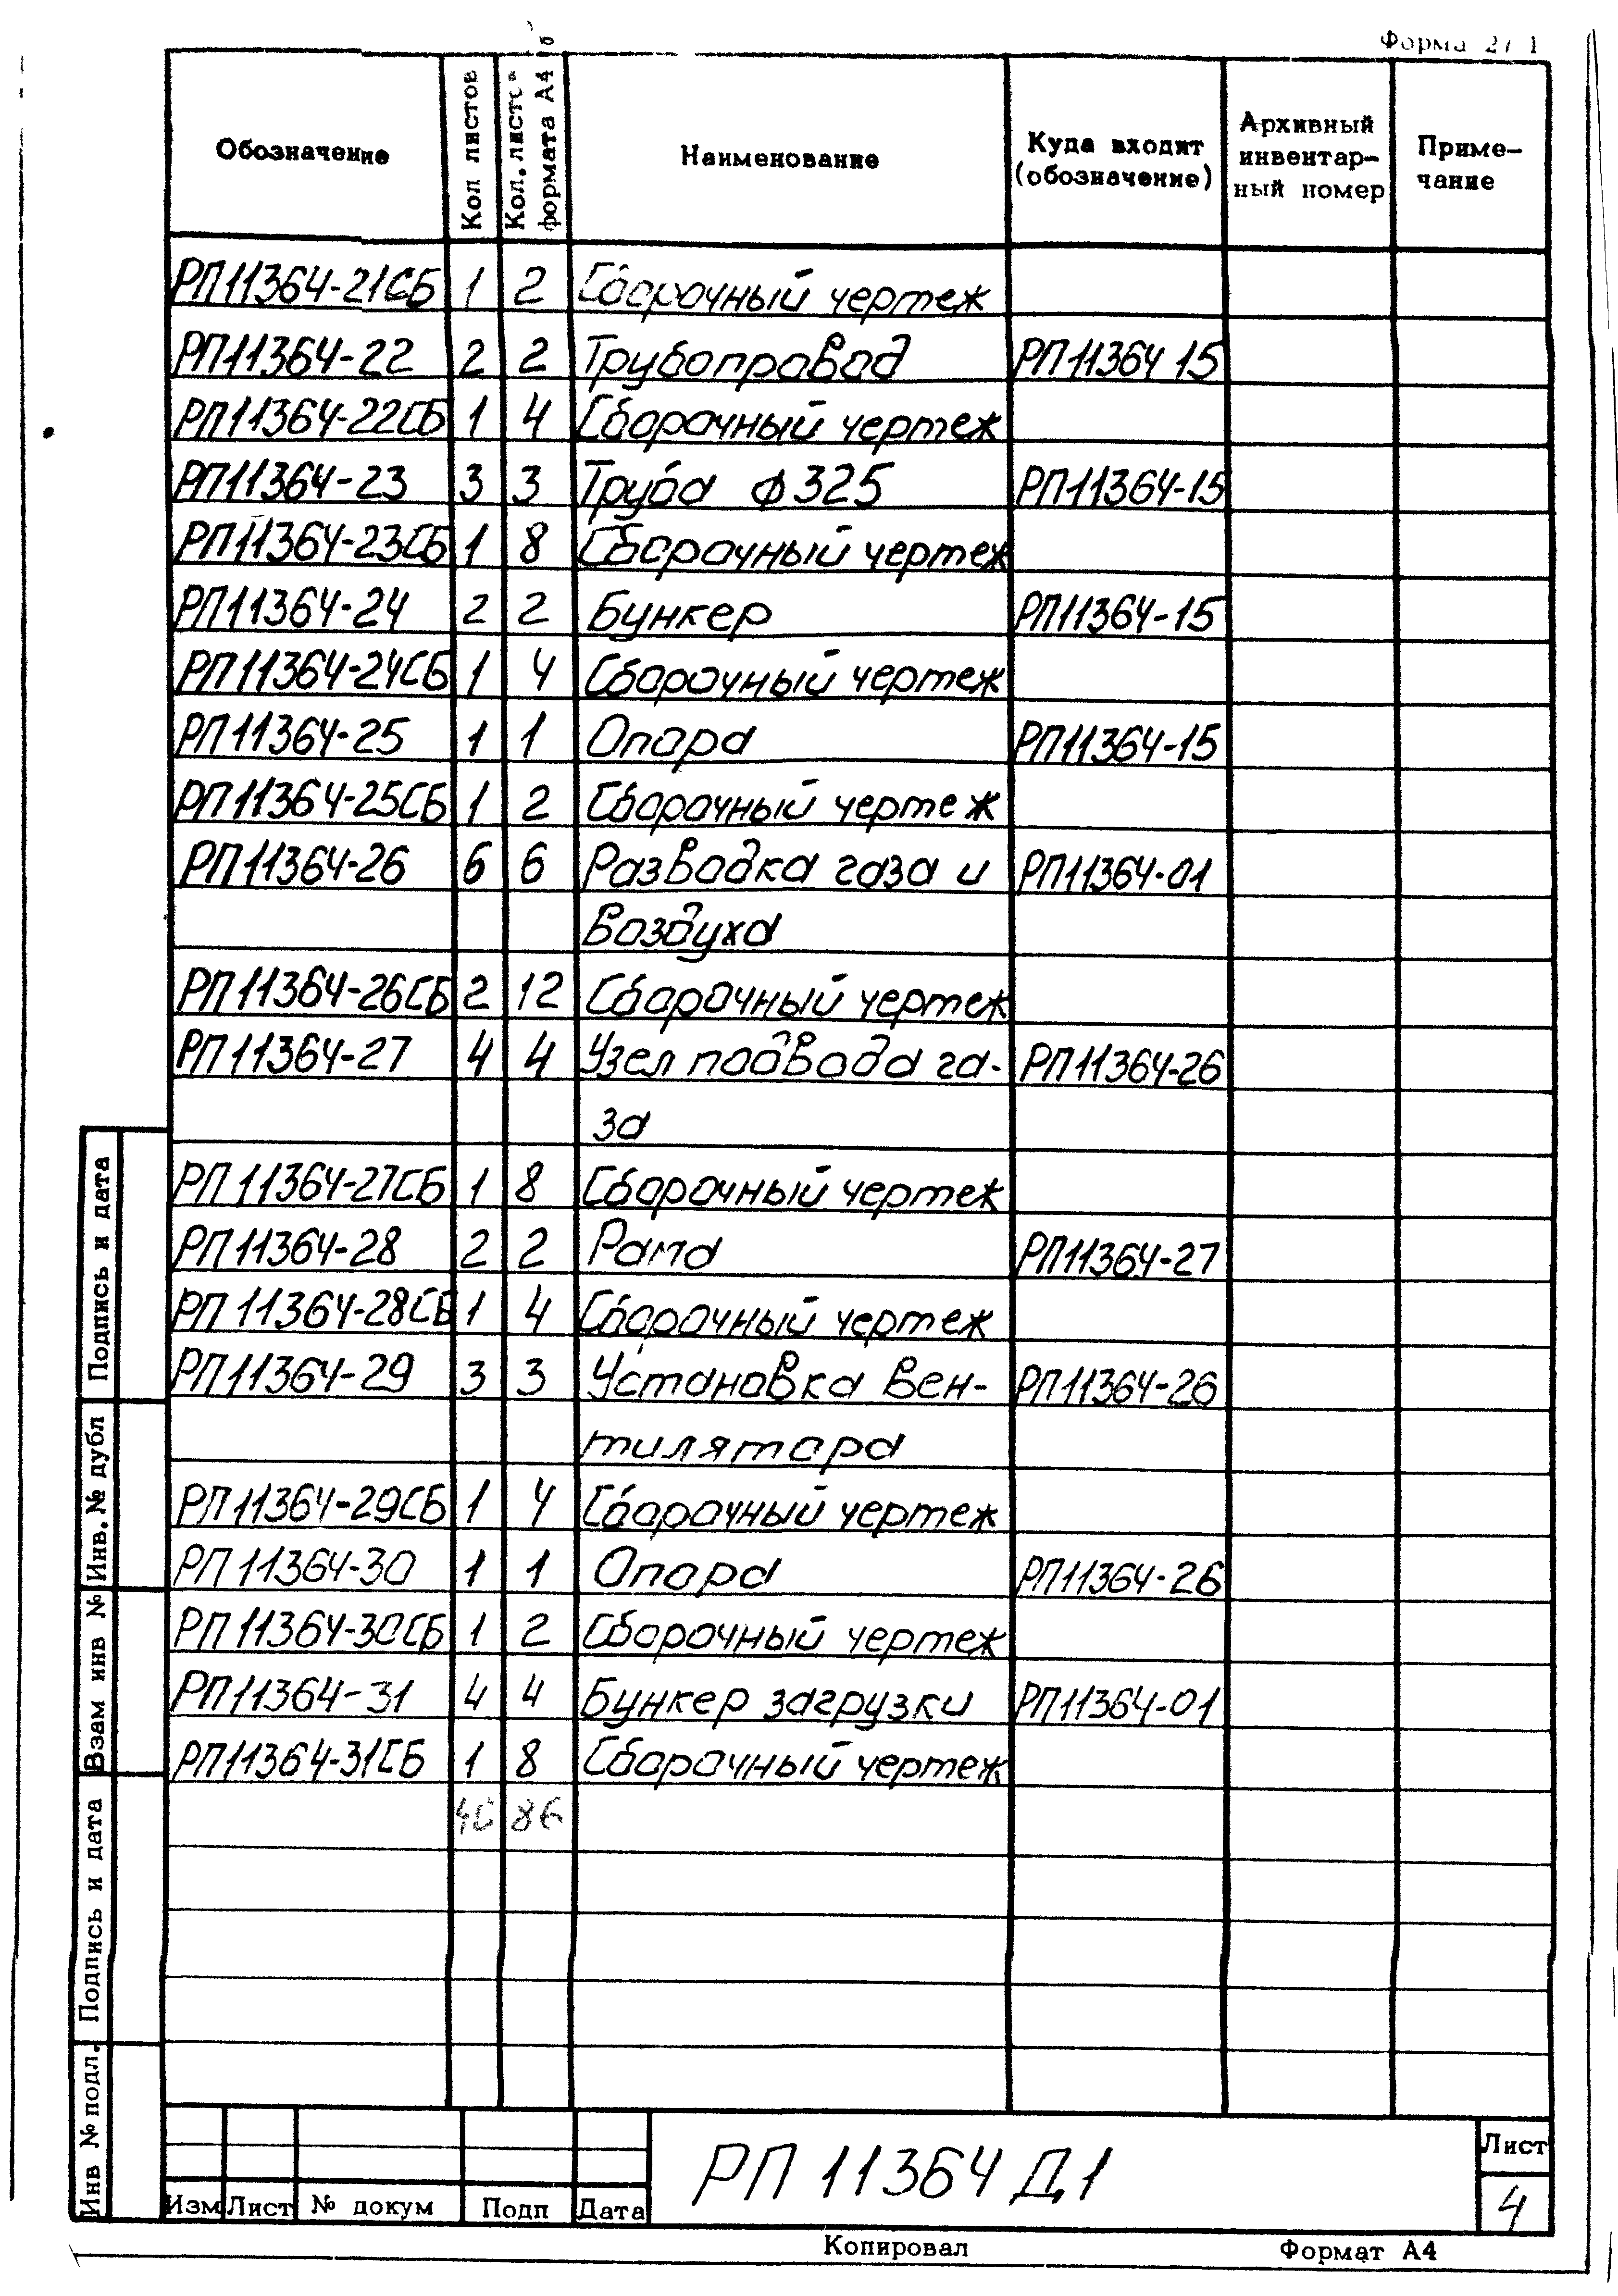 Форма 27 1
Обозначение | Кол листов | Кол. листов формата А4 | Наименование | Куда входит (обозначение) | Архивный инвентар-ный номер | Приме-чание
РП11364-21СБ 1 2 Сборочный чертеж
РП11364-22 2 2 Трубопровод РП11364 15
РП11364-22СБ 1 4 Сборочный чертеж
РП11364-23 3 3 Труба ф325 РП11364-15
РП11364-23СБ 1 8 Сборочный чертеж
РП11364-24 2 2 Бункер РП11364-15
РП11364-24СБ 1 4 Сборочный чертеж
РП11364-25 1 1 Опора РП11364-15
РП11364-25СБ 1 2 Сборочный чертеж
РП11364-26 6 6 Разводка газа и РП11364-01
воздуха
РП11364-26СБ 2 12 Сборочный чертеж
РП11364-27 4 4 Узел подвода га- РП11364-26
за
РП11364-27СБ 1 8 Сборочный чертеж
РП11364-28 2 2 Рама РП11364-27
РП11364-28СБ 1 4 Сборочный чертеж
РП11364-29 3 3 Установка вен- РП11364-26
тилятора
РП11364-29СБ 1 4 Сборочный чертеж
РП11364-30 1 1 Опора РП11364-26
РП11364-30СБ 1 2 Сборочный чертеж
РП11364-31 4 4 Бункер загрузки РП11364-01
РП11364-31СБ 1 8 Сборочный чертеж
86
Подпись и дата
Инв. № дубл
Взам инв №
Подпись и дата
Инв № подл.
Изм Лист № докум Подп Дата
РП 11364 Д1
Лист
4
Копировал Формат А4